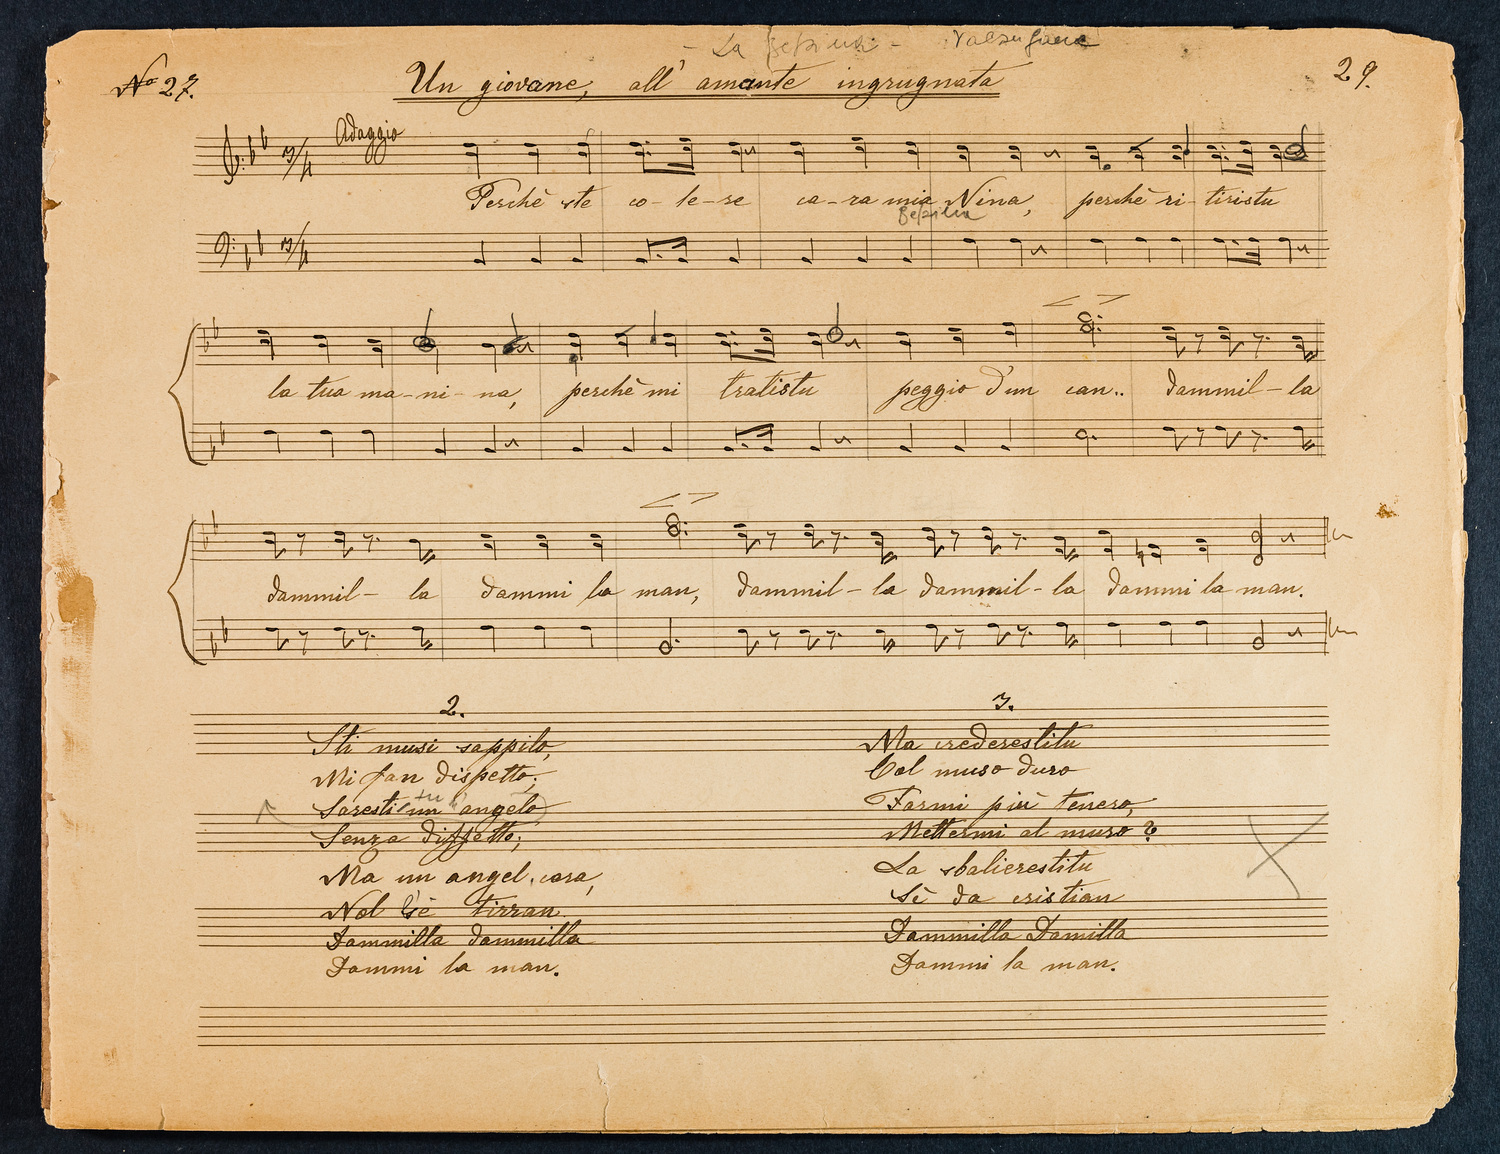 - La Bepina - Valsugana
No 27.
Un giovane, all' amante ingrugnata
29.
Adaggio
3/4
Perchè ste co-le-re ca-ra mia Nina, perchè ri-tiristu
Bepina
3/4
la tua ma-ni-na, perchè mi tratistu peggio d'un can.. dammil-la
dammil- la dammi la man, dammil-la dammil-la dammi la man.
2.
Sti musi sappilo,
Mi fan dispetto;
Saresti un angelo
tu
Senza diffetto;
Ma un angel, cara,
Nol xè tirran
Dammilla dammilla
Dammi la man.
3.
Ma crederestitu
Col muso duro
Farmi più tenero,
Mettermi al muro?
La sbalierestitu
Sè da cristian
Dammilla Damilla
Dammi la man.